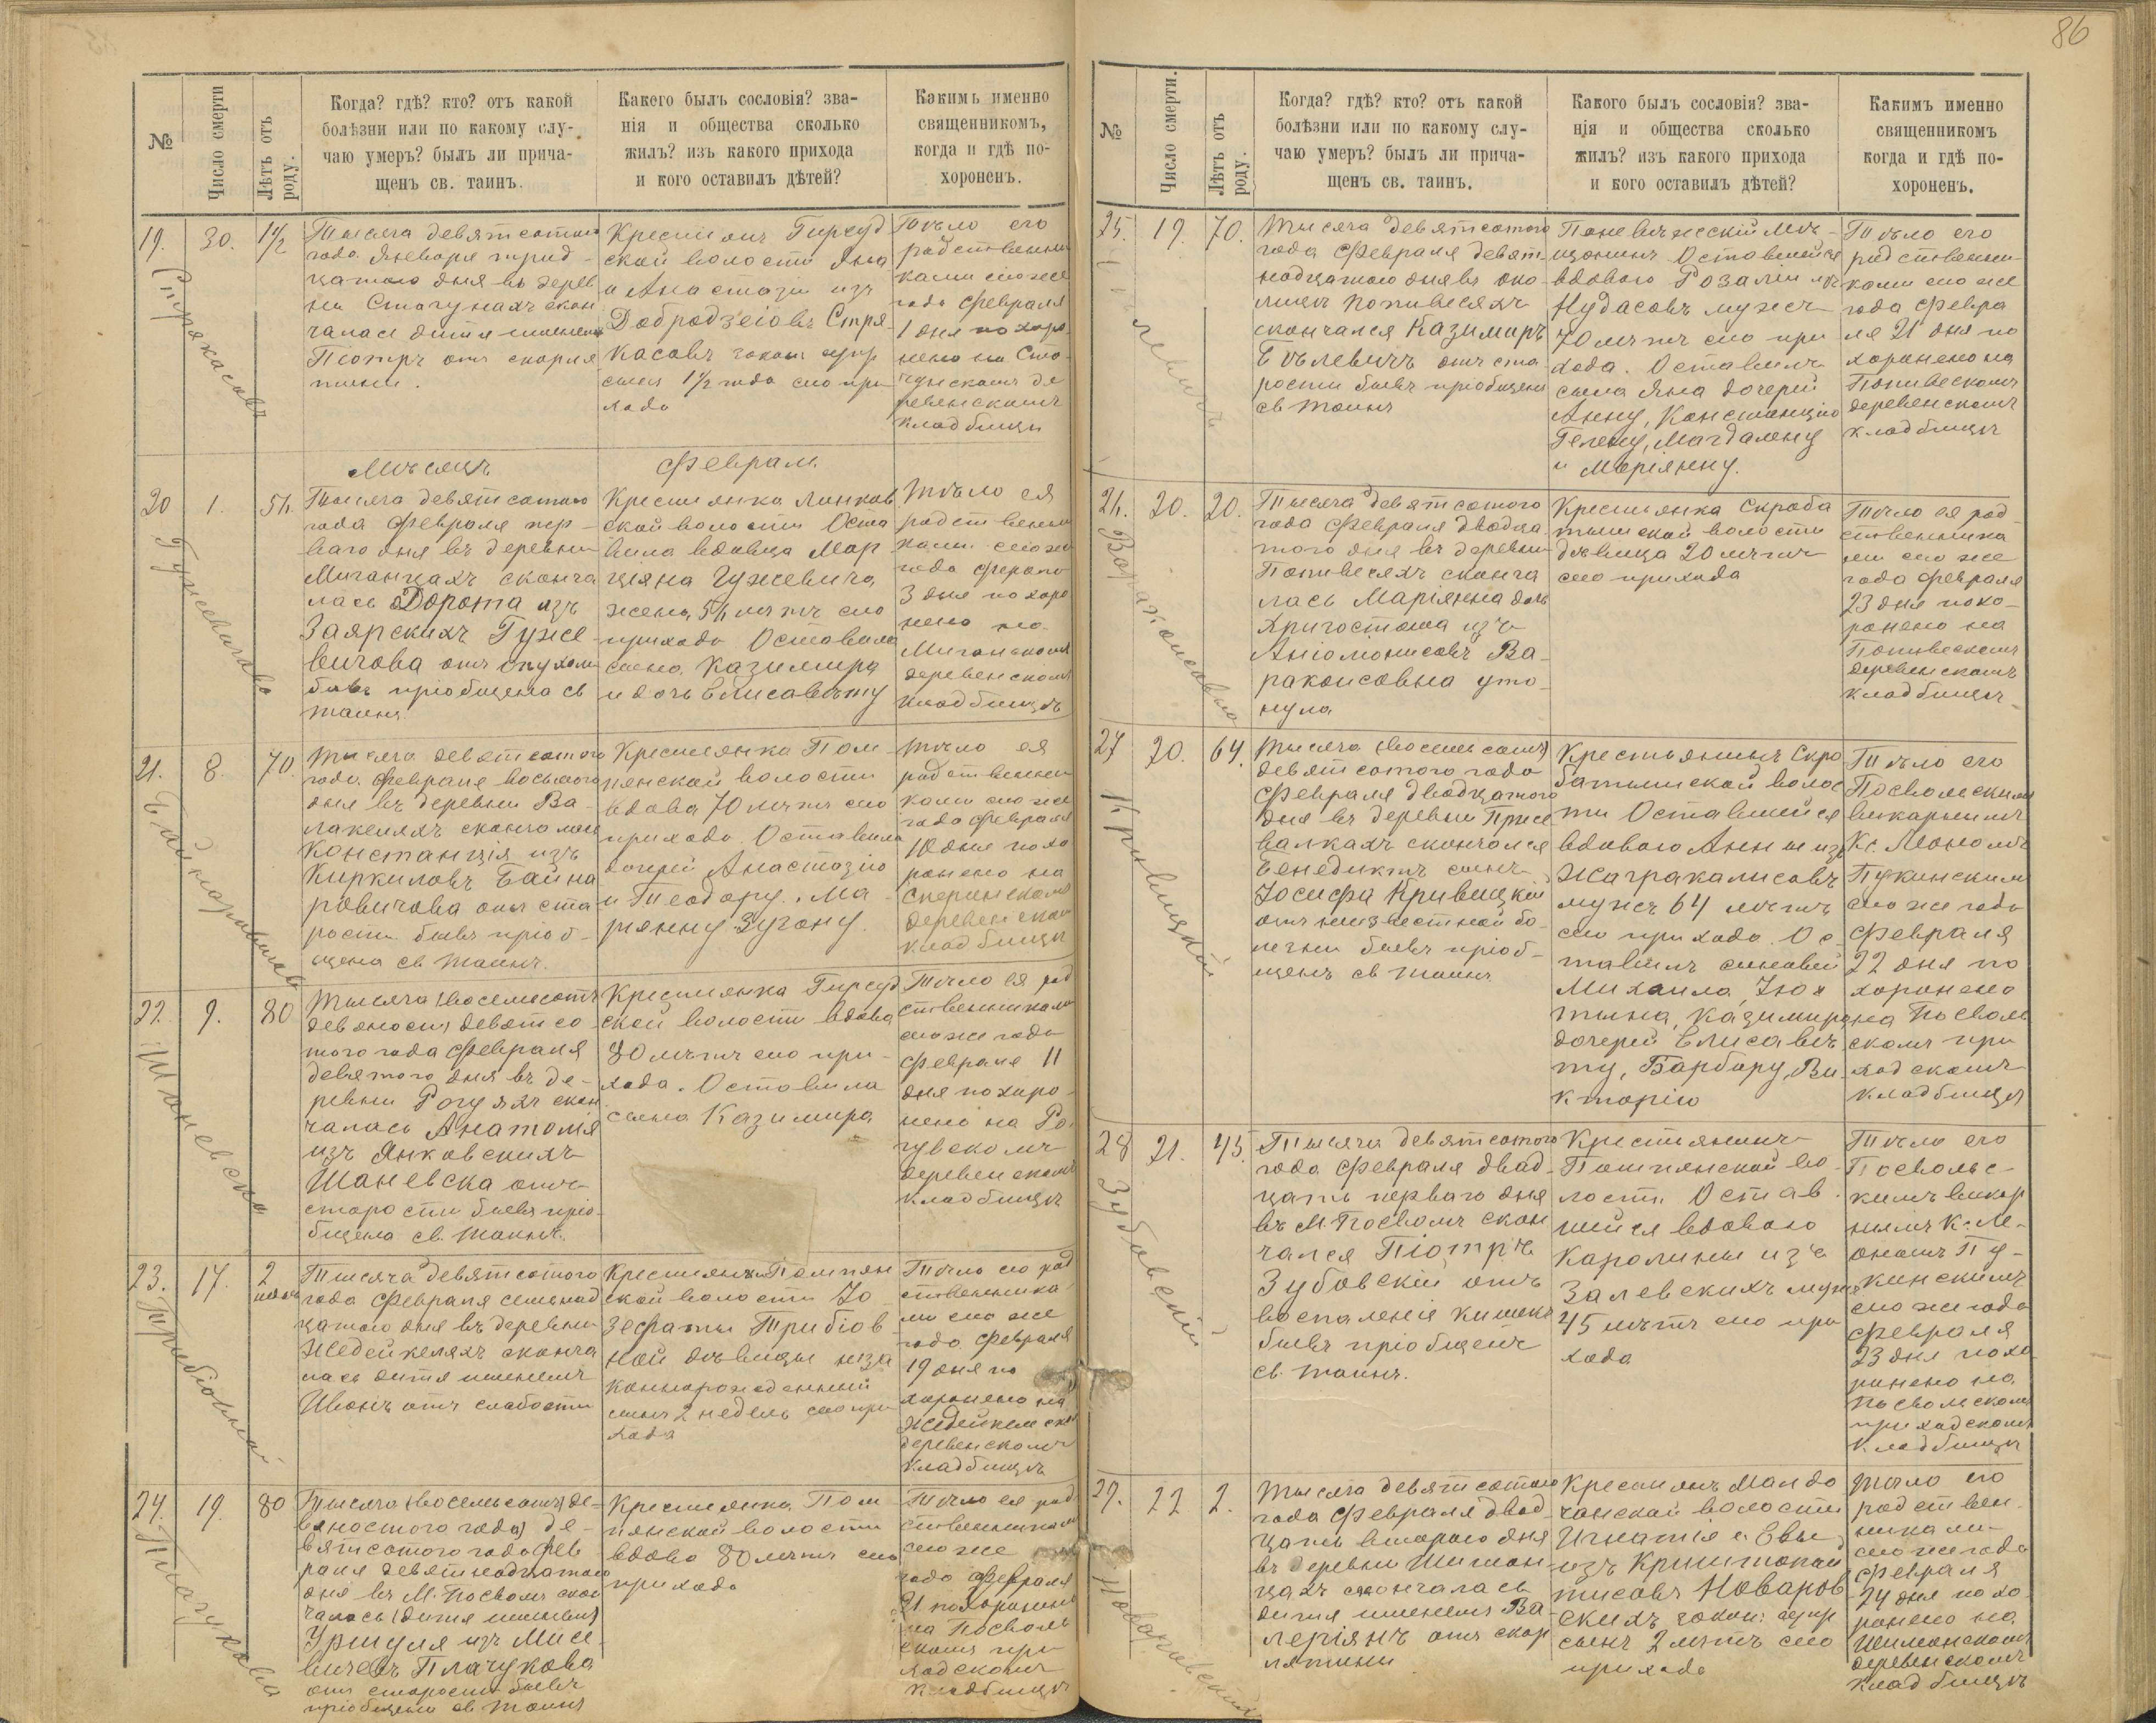 86
№
Число смерти
Лѣтъ отъ роду.
Когда? гдѣ? кто? отъ какой
болѣзни или по какому слу-
чаю умеръ? былъ ли прича-
щенъ св. таинъ.
Какого былъ сословія? зва-
нія и общества сколько
жилъ? изъ какого прихода
и кого оставилъ дѣтей?
Какимъ именно
священникомъ,
когда и гдѣ по-
хороненъ.
19.
Стрякасовъ
30.
1½
Тысяча девятсотого
года Января трид-
цатого дня въ дерев
ни Стагунахъ скон
чалась дитя именемъ
Піотръ отъ скарля
тины.
Крестьянъ Гирсуд
ской волости Яна
и Анастазіи изъ
Добродзеіовъ Стря-
касовъ закон: супр
сынъ 1½ года сего при
хода
Тѣло его
родственни
ками сего же
года Февраля
1 дня похоро
нено на Ста-
гунскомъ де
ревенскомъ
кладбищѣ
Мѣсяцъ Февраль.
20
Гужевичова
1.
54.
Тысяча девятсотого
года Февраля пер-
ваго дня въ деревни
Миганцахъ сконча
лась Дорота изъ
Заярскихъ Гуже-
вичова отъ опухоли
бывъ пріобщена св
таинъ.
Крестьянка Линков
ской волости Оста
вила вдовца Мар
ціяна Гужевича
жена, 54 лѣтъ сего
прихода Оставила
сына Казимира
и дочь Елисавѣту
Тѣло ея
родственни
ками сего же
года Февраля
3 дня похоро
нено на
Миганскомъ
деревенскомъ
кладбищѣ
21.
Байнаровичова
8.
70.
Тысяча девятсотого
года Февраля восьмого
дня въ деревни Ва-
лакеляхъ скончалась
Констанція изъ
Киркиловъ Байна
ровичова отъ ста
рости бывъ пріоб-
щена св таинъ.
Крестьянка Пом-
пянской волости
вдова 70 лѣтъ сего
прихода Оставила
дочерей Анастазію
и Теодору. Ма-
рянну Зузану.
Тѣло ея
родственни
ками сего же
года Февраля
10 дня похо
ронено на
деревенскомъ
кладбищѣ
22.
Шаневска
9.
80
Тысяча (восемсотъ
девяносто) девятсо
того года Февраля
девятого дня въ де-
ревни Рогуяхъ скон
чалась Анатолія
изъ Янковскихъ
Шаневска отъ
старости бывъ пріо-
бщена св. таинъ.
Крестьянка Гирсуд
ской волости вдова
80 лѣтъ сего при-
хода. Оставила
сына Казимира
Тѣло ея род
ственниками
сего же года
Февраля 11
дня похоро-
нено на Ро-
гувскомъ
деревенскомъ
кладбищѣ
23.
Трибіовной
17.
2 недѣль
Тысяча девятсотого
года Февраля семьнад
цатого дня въ деревни
Жедейкеляхъ сконча
лась дитя именемъ
Иванъ отъ слабости
Крестьянки Помпян
ской волости Іо-
зефаты Трибіов-
ной дѣвицы неза
коннорожденный
сынъ 2 недѣль сего при
хода
Тѣло его род
ственника
ми сего же
года Февраля
19 дня по
хоронено на
Жедейкельск
деревенскомъ
кладбищѣ
24.
Плачукова
19.
80
Тысяча (восемьсотъ де-
вяностого года) де-
вятсотого года Фев
раля девятнадцатого
дня въ М. Посволѣ скон
чалась (дитя именемъ)
Уршуля изъ Мисе-
вичевъ Плачукова
отъ старости бывъ
пріобщена св таинъ
Крестьянка Пом-
пянской волости
вдова 80 лѣтъ сего
прихода
Тѣло ея род
ственниками
сего же
года Февраля
21 похоронено
на Посволь
скомъ при
ходскомъ
кладбищѣ
№
Число смерти.
Лѣтъ отъ роду.
Когда? гдѣ? кто? отъ какой
болѣзни или по какому слу-
чаю умеръ? былъ ли прича-
щенъ св. таинъ.
Какого былъ сословія? зва-
нія и общества сколько
жилъ? изъ какого прихода
и кого оставилъ дѣтей?
Какимъ именно
священникомъ
когда и гдѣ по-
хороненъ.
25.
19.
70.
Тысяча девятсотого
года Февраля девят
надцатого дня въ око-
лицѣ Попивесяхъ
скончался Казимиръ
Бѣлевичъ отъ ста
рости бывъ пріобщенъ
св таинъ
Поневѣжескій мѣ-
щанинъ Оставшейся
вдовою Розаліи изъ
Нудасовъ мужъ
70 лѣтъ сего при
хода. Оставилъ
сына Яна дочерей
Анну, Констанцію
Гелену, Магдалену
и Маріянну.
Тѣло его
родственни-
ками сего же
года Февра
ля 21 дня по
хоронено на
Попивескомъ
деревенскомъ
кладбищѣ
26.
Вараконсовна
20.
20.
Тысяча девятсотого
года Февраля двадца
того дня въ деревни
Попивесяхъ сконча
лась Маріянна дочь
Хригостома изъ
Антомонисовъ Ва-
раконсовна уто-
нула
Крестьянка Скроба
тышской волости
дѣвица 20 лѣтъ
сего прихода
Тѣло ея род
ственника
ми сего же
года Февраля
23 дня похо-
ронено на
Попивескомъ
деревенскомъ
кладбищѣ
27
Кривицкій
20.
64.
Тысяча (восемьсотъ)
девятсотого года
Февраля двадцатого
дня въ деревни Присе
валкахъ скончался
Бенедиктъ сынъ
Іосифа Кривицкій
отъ неизвестной бо-
лезни бывъ пріоб-
щенъ св таинъ.
Крестьянинъ Скро
батышской волос
ти Оставшейся
вдовою Анны изъ
Жагракалисовъ
мужъ 64 лѣтъ
сего прихода. Ос-
тавилъ сыновей
Михаила, Іох
тыма, Казимира,
дочерей Елисавѣ
ту, Барбару, Ви
кторію
Тѣло его
Посвольскимъ
викарнымъ
Кс. Леономъ
Пукинскимъ
сего же года
Февраля
22 дня по
хоронено
на Посволь
скомъ при
ходскомъ
кладбищѣ
28
Зубовскій
21.
45.
Тысяча девятсотого
года Февраля двад-
цать перваго дня
въ М. Посволѣ скон
чался Піотръ
Зубовскій отъ
воспаленія кишекъ
бывъ пріобщенъ
св. таинъ.
Крестянинъ
Помпянской во-
лости Остав-
шейся вдовою
Каролины изъ
Залевскихъ мужъ
45 лѣтъ сего при
хода
Тѣло его
Посвольс-
кимъ викар
нымъ К. Ле-
ономъ Пу-
кинскимъ
сего же года
Февраля
23 дня похо
ронено на
Посвольскомъ
приходскомъ
кладбищѣ
29.
22
2.
Тысяча девятсотого
года Февраля двад-
цать второго дня
въ деревни Шиман-
цахъ скончалась
дитя именемъ Ва-
леріянъ отъ скар
лятины
Крестьянъ
волости
Игнатія и Евы
изъ
Новаров-
скихъ закон: супр
сынъ 2 лѣтъ сего
прихода
Тѣло его
родствен-
никами
сего же года
Февраля
24 дня похо
ронено на
Шиманскомъ
деревенскомъ
кладбищѣ